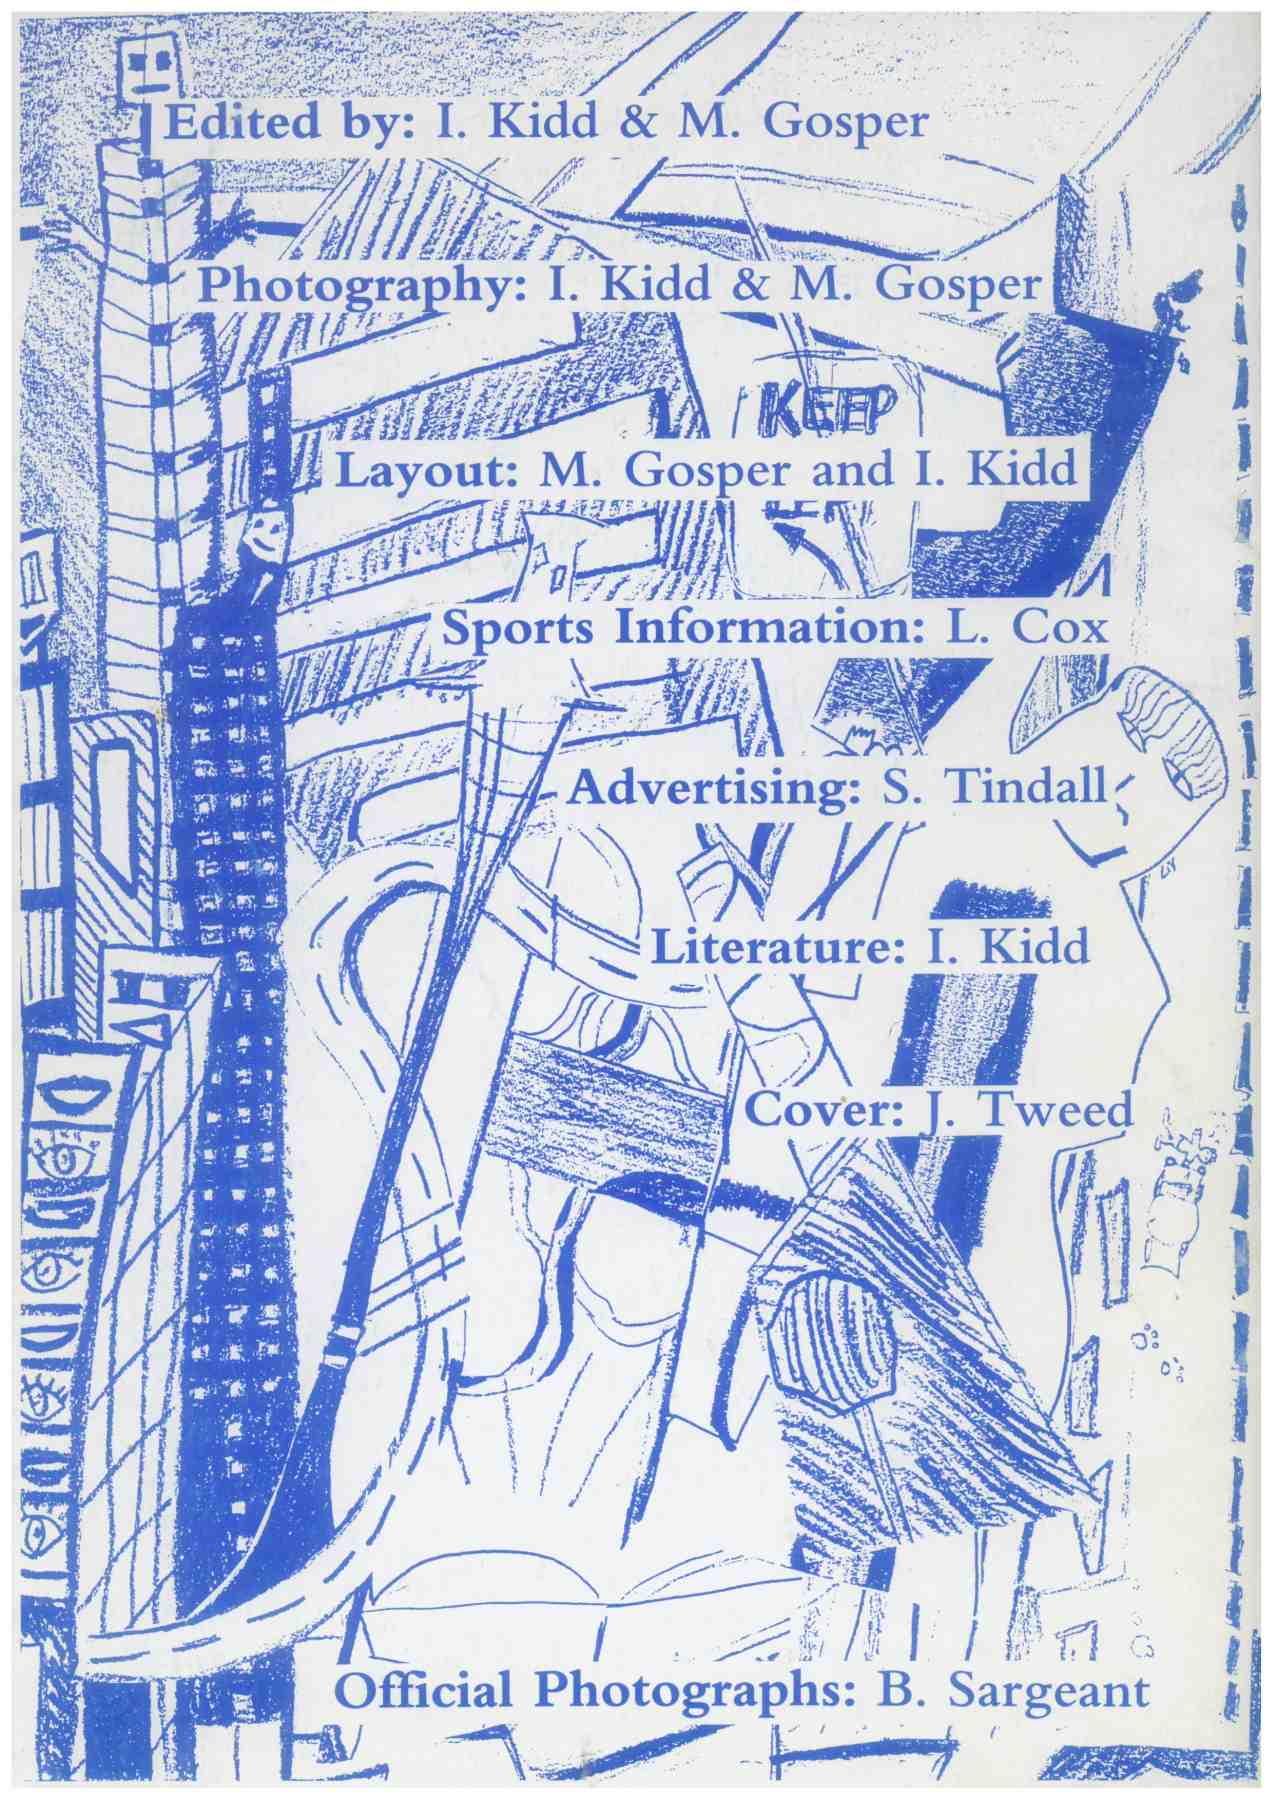 Edited by: I. Kidd & M. Gosper
Photography: I. Kidd & M. Gosper
KEEP
Layout: M. Gosper and I. Kidd
Sports Information: L. Cox
Advertising: S. Tindall
Literature: I. Kidd
Cover: J. Tweed
Official Photographs: B. Sargeant